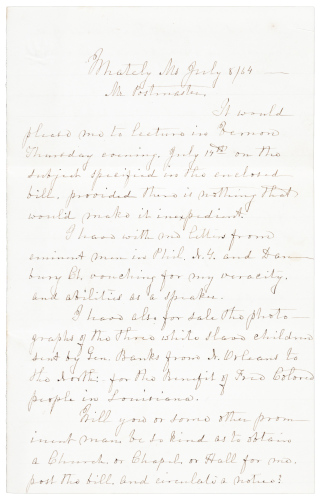 Whately Ms July 8/64 —
Mr Postmaster,
It would
please me to lecture in Vernon
Thursday evening, July 14th on the
subject specified in the enclosed
bill, provided there is nothing that
would make it inexpedient.
I have with me letters from
eminent men in Phil, N.Y. and Dan-
bury Ct, vouching for my veracity
and abilities as a speaker.
I have also for sale the photo-
graphs of the three white slave children
sent by Gen. Banks from N. Orleans to
the North, for the benefit of Free Colored
people in Louisiana.
Will you or some other prom-
inent man be so kind as to obtain
a Church, or Chapel, or Hall for me,
post the bill, and circulate a notice?